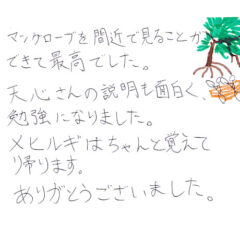 マングローブを間近で見ることが
できて最高でした。
天心さんの説明も面白く、
勉強になりました。
メヒルギはちゃんと覚えて
り帰ります。
ありがとうございました。